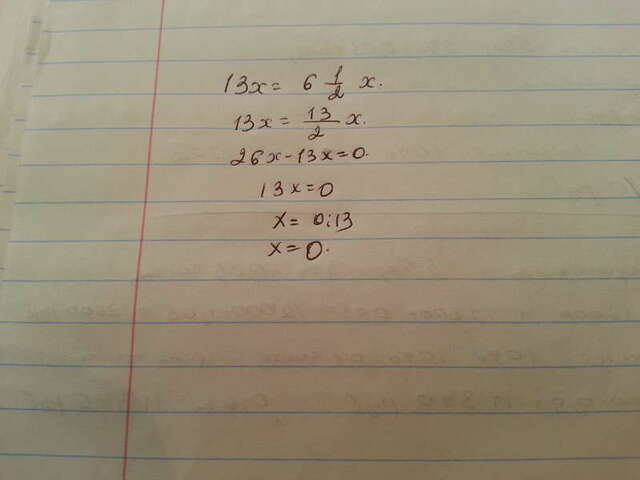 13x = 6 1/2 x.
13x = 13/2 x.
26x - 13x = 0.
13x = 0
x = 0:13
x = 0.